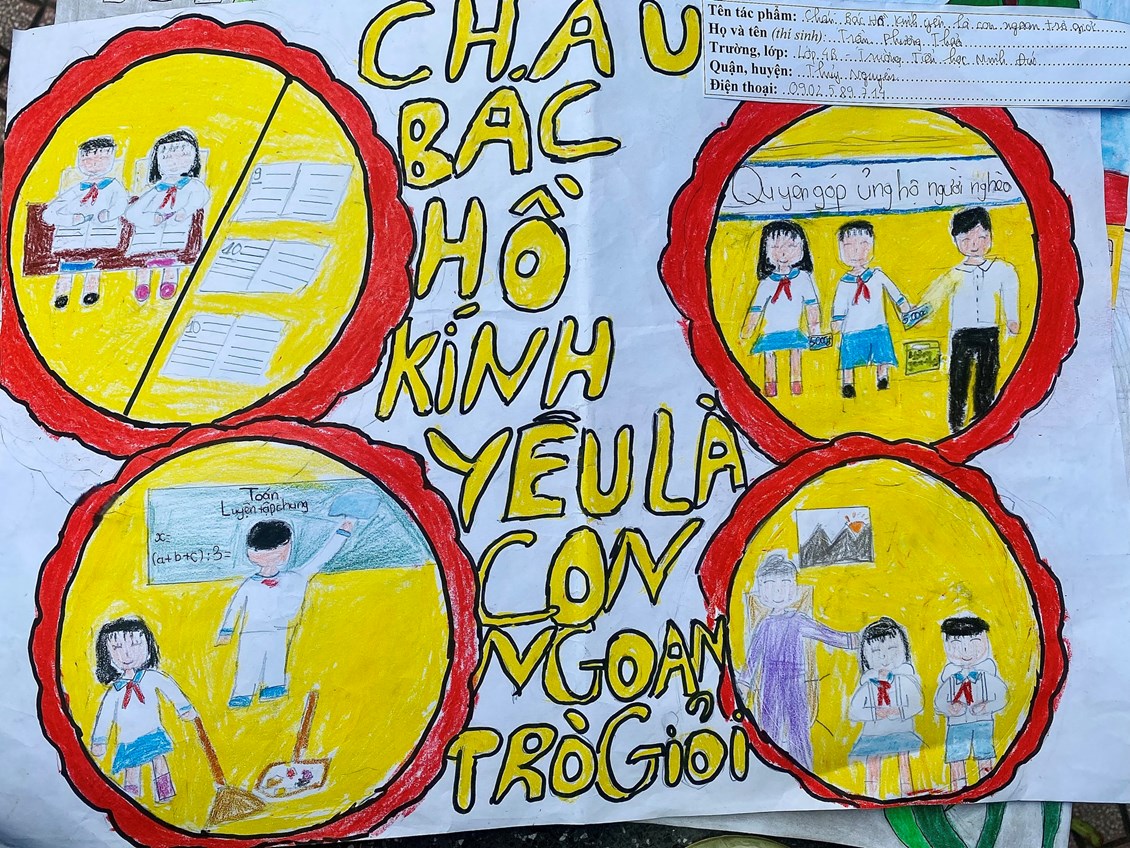 CHÁU
BÁC
HỒ
KÍNH
YÊU LÀ
CON
NGOAN
TRÒ GIỎI
Tên tác phẩm: Cháu Bác Hồ kính yêu là con ngoan trò giỏi
Họ và tên (thí sinh): Trần Phương Thảo
Trường, lớp: Lớp 4B - Trường Tiểu học Minh Đức
Quận, huyện: Thuỷ Nguyên
Điện thoại: 0902.589.714
9
10
10
Quyên góp ủng hộ người nghèo
5000đ
5000đ
Toán
Luyện tập chung
x=
(a+b+c):3=